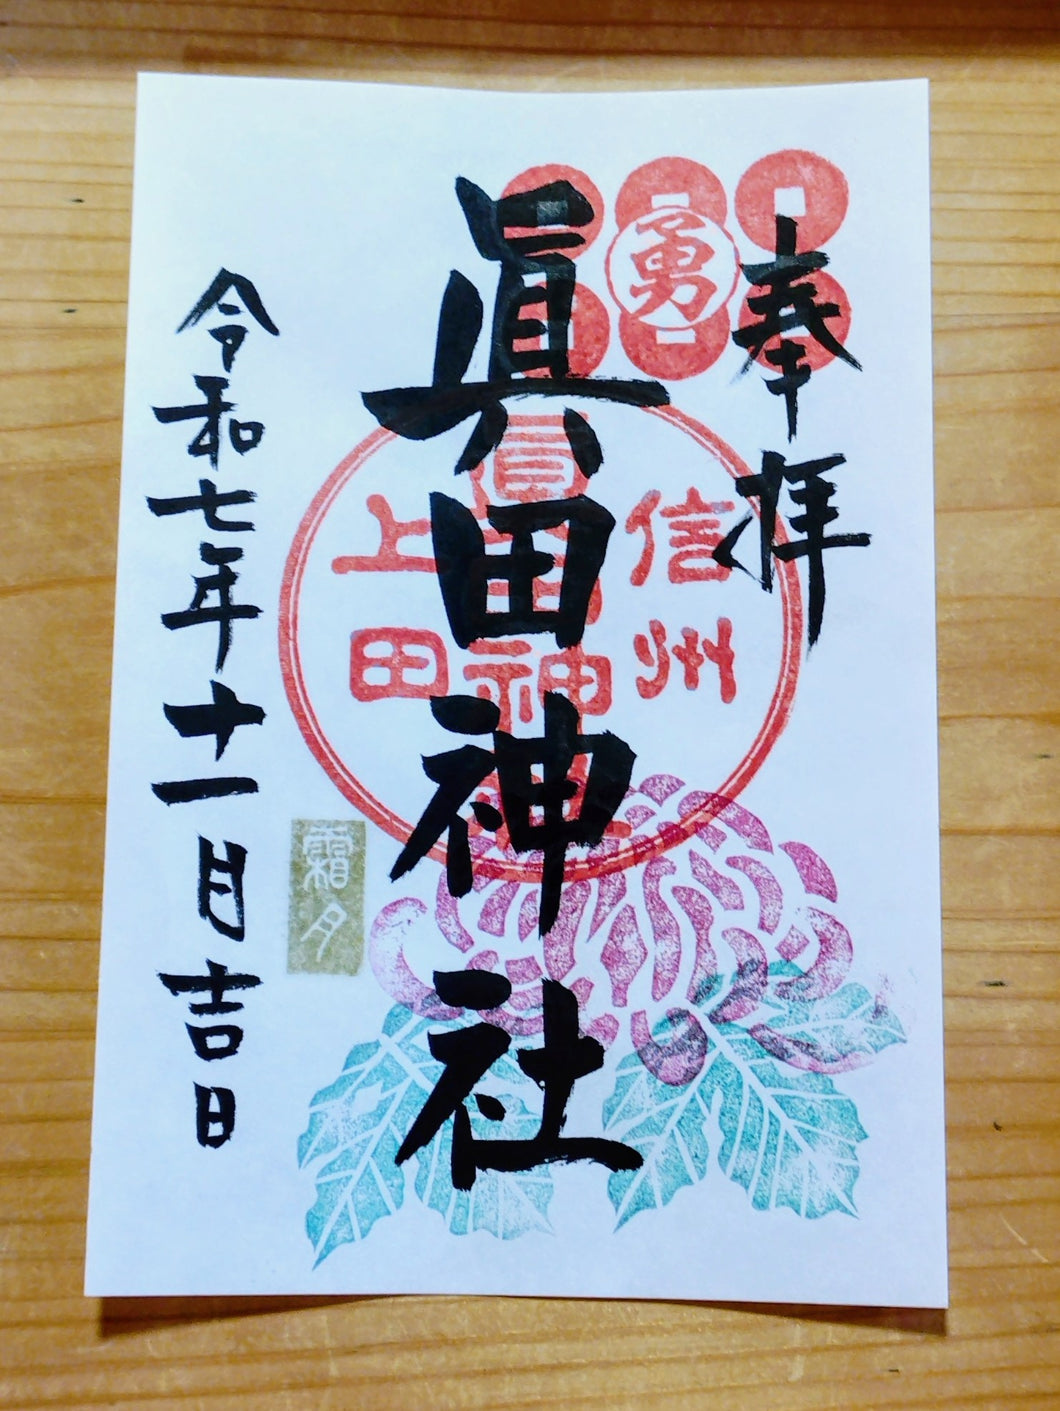 奉拝
勇
眞田神社
信州
眞田神社
上田
霜月
令和七年十一月吉日